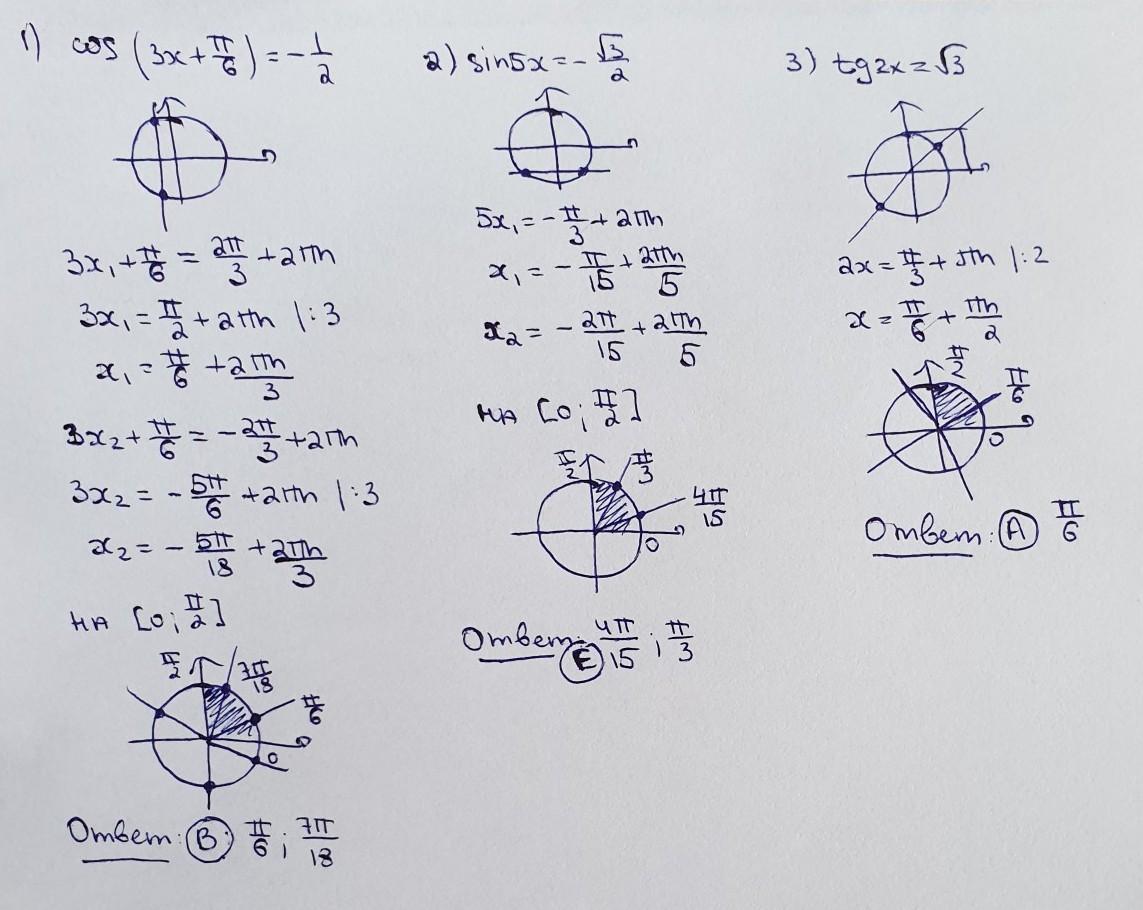 1) cos (3x+π/6)=-1/2
3x₁+π/6=2π/3+2πn
3x₁=π/2+2πn |:3
x₁=π/6+2πn/3
3x₂+π/6=-2π/3+2πn
3x₂=-5π/6+2πn |:3
x₂=-5π/18+2πn/3
НА [0;π/2]
π/2
7π/18
π/6
0
Ответ: В) π/6; 7π/18
2) sin5x=-√3/2
5x₁=-π/3+2πn
x₁=-π/15+2πn/5
x₂=-2π/15+2πn/5
НА [0;π/2]
π/2
π/3
4π/15
0
Ответ: 4π/15; π/3
Е
3) tg2x=√3
2x=π/3+πn |:2
x=π/6+πn/2
π/2
π/6
0
Ответ: А π/6